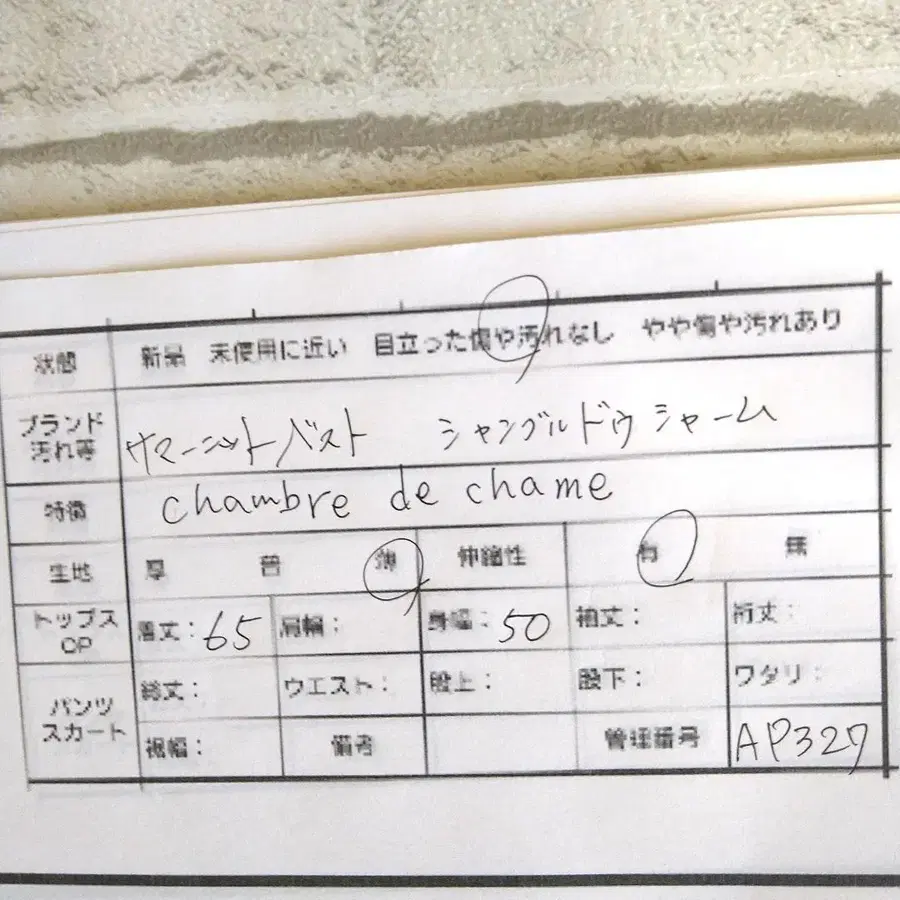 状態 新品 未使用に近い 目立った傷や汚れなし やや傷や汚れあり
ブランド 汚れ等 サマーニットベスト シャンブルドゥシャーム
特徴 chambre de chame
生地 厚 普 薄 伸縮性 有 無
トップス OP 着丈：65 肩幅： 身幅：50 袖丈： 裄丈：
パンツ スカート 総丈： ウエスト： 股上： 股下： ワタリ：
裾幅： 備考 管理番号 AP327